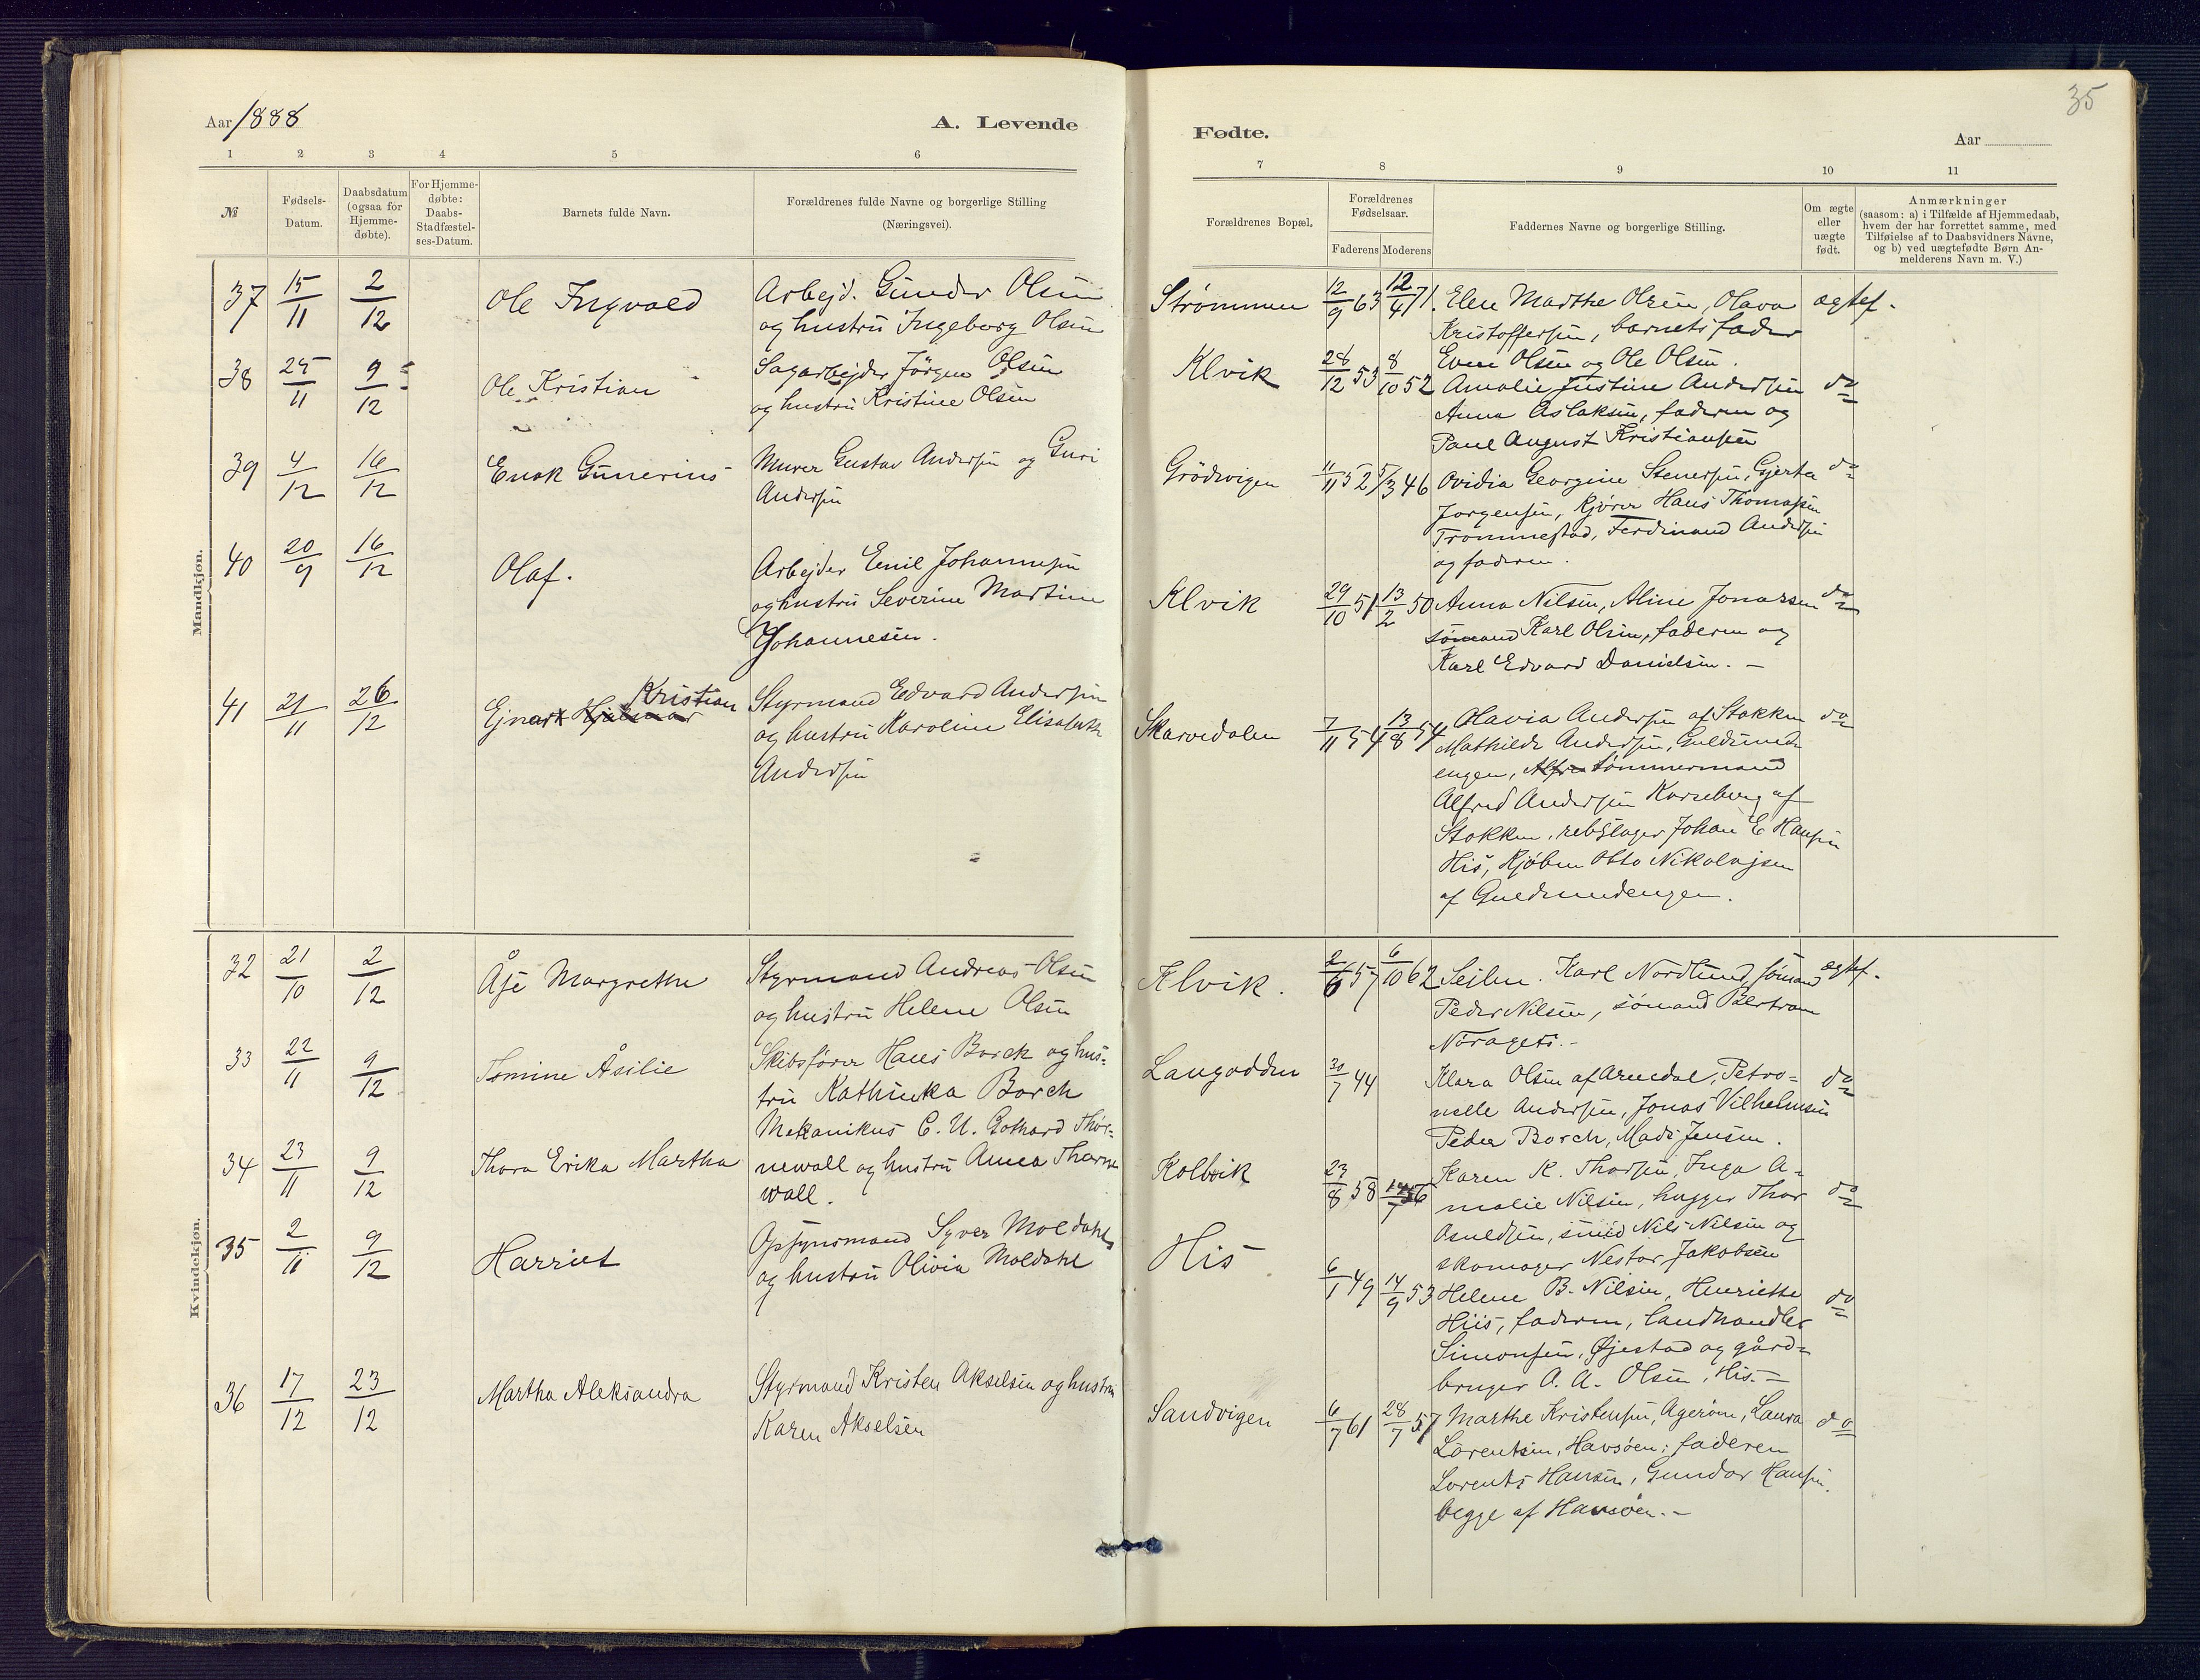 35
Aar 1888
A. Levende
Fødte.
Aar
1 2 3 4 5 6 7 8 9 10 11
№
Fødsels-
Datum.
Daabsdatum
(ogsaa for
Hjemme-
døbte).
For Hjemme-
døbte:
Daabs-
Stadfæstel-
ses-Datum.
Barnets fulde Navn.
Forældrenes fulde Navne og borgerlige Stilling
(Næringsvei).
Forældrenes Bopæl.
Forældrenes
Fødselsaar.
Faderens Moderens
Faddernes Navne og borgerlige Stilling.
Om ægte
eller
uægte
født.
Anmærkninger
(saasom: a) i Tilfælde af Hjemmedaab,
hvem der har forrettet samme, med
Tilføielse af to Daabsvidners Navne,
og b) ved uægtefødte Børn An-
melderens Navn m. V.)
Mandkjøn.
37 15/11 2/12 Ole Ingvald
Arbejd. Gunder Olsen
og hustru Ingeborg Olsen
Strømmen 12/9 63 12/4 71. Elen Marthe Olsen, Olava ægtef.
Kristoffersen, barnets fader
Even Olsen og Ole Olsen.
38 25/11 9/12 Ole Kristian
Sagarbejder Jörgen Olsen
og hustru Kristine Olsen
Klvik 28/12 53 8/10 52 Amalie Justine Andersen do
Anna Aslaksen, faderen og
Paul August Kristiansen
39 4/12 16/12 Enok Gunerius
Murer Gustav Andersen og Guri
Andersen
Grödvigen 11/11 52 5/3 46 Ovidia Georgine Stenersen, Gjerta do
Jorgensen, Kjörer Hans Thomassen
Trommestad, Ferdinand Andersen
og faderen.
40 20/9 16/12 Olaf.
Arbejder Emil Johannesen
og hustru Severine Martine
Johannesen.
Klvik 29/10 51 13/2 50 Anna Nilsen, Aline Jonassen do
sömand Karl Olsen, faderen og
Karl Edvard Danielsen. -
41 21/11 26/12 Ejnar Hjalmar Kristian
Styrmand Edvard Andersen
og hustru Karoline Elisabeth
Andersen
Skarvedalen 7/11 54 13/8 54 Olavia Andersen af Stokken do
Mathilde Andersen, Guldsmed-
engen, Alfre tömmermand
Alfred Andersen Korseberg af
Stokken, rebslager Johan E Hansen
His, Kjöbm Otto Nikolajsen
af Guldsmedengen.
Kvindekjøn.
32 21/10 2/12 Åse Margrethe
Styrmand Andreas Olsen
og hustru Helene Olsen
Klvik. 2/6 57 6/10 62 Sejlm. Karl Nordlund, sömand ægtef.
Peder Nilsen, sömand Bertram
33 22/11 9/12 Tomine Åsilie
Skibsförer Hans Borch og hus-
tru Kathinka Borch
Langodden 30/7 44 Klara Olsen af Arendal, Petro- do
nelle Andersen, Jonas Vilhelmsen
Peder Borch, Mads Jensen.
34 23/11 9/12 Thora Erika Martha
Mekanikus C. U. Gothard Thör-
newall og hustru Anna Thorne
wall.
Kolbvik 23/8 58 Karen K. Thorsen, Inga A-
malie Nilsen, hugger Thor do
Osuldsen, smed Nils Nilsen og
skomager Nestor Jakobsen
35 2/11 9/12 Harriet
Opsynsmand Syver Moldahl
og hustru Olivia Moldahl
His 6/1 49 14/9 53 Helene B. Nilsen, Henriette do
Hiis, faderen, landhandler
Simonsen, Øjestad og gård-
bruger O. A. Olsen, His. -
36 17/12 23/12 Martha Aleksandra
Styrmand Kristen Akselsen og hustru
Karen Akselsen
Sandvigen 6/7 61 28/7 57 Marthe Kristensen, Ageröen, Laura do
Lorentsen, Havsöen; faderen
Lorents Hansen, Gundar Hansen
begge af Havsöen. -